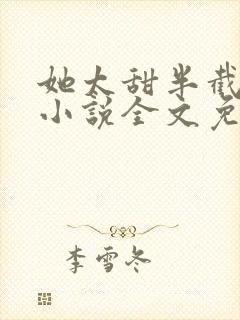 她太甜半截
小说全文免
李雪冬